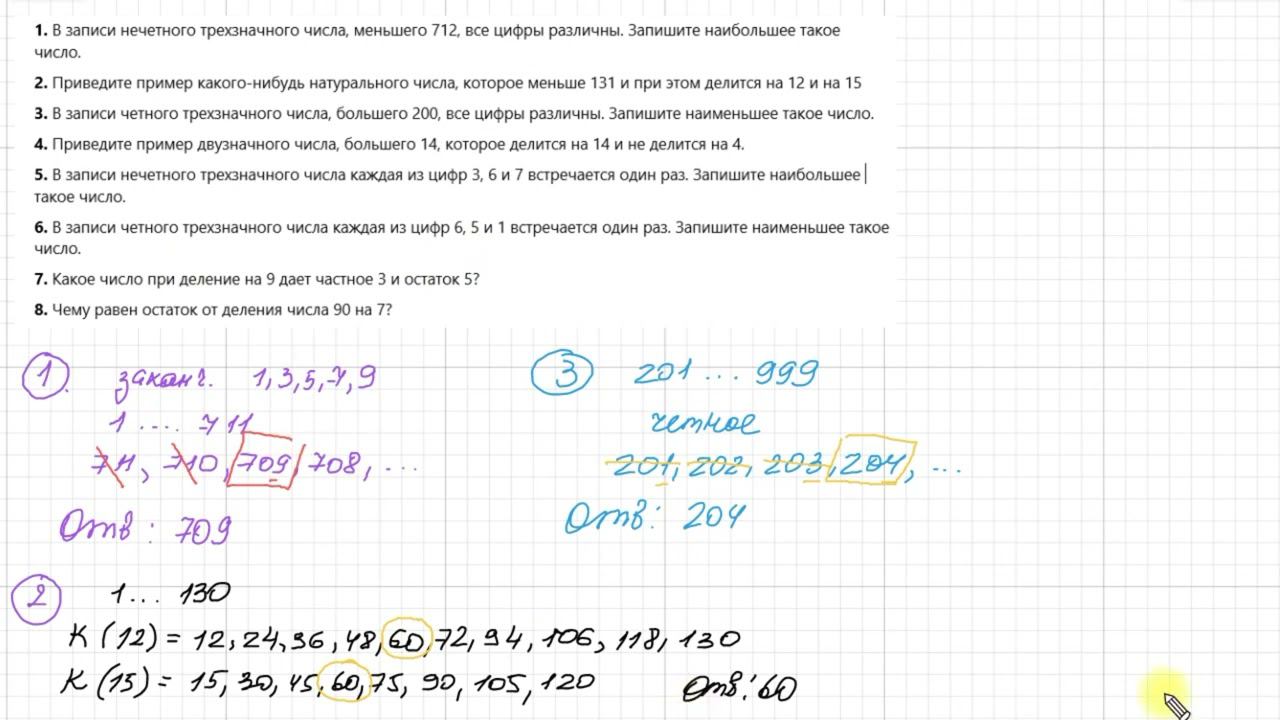 1. В записи нечетного трехзначного числа, меньшего 712, все цифры различны. Запишите наибольшее такое
число.
2. Приведите пример какого-нибудь натурального числа, которое меньше 131 и при этом делится на 12 и на 15
3. В записи четного трехзначного числа, большего 200, все цифры различны. Запишите наименьшее такое число.
4. Приведите пример двузначного числа, большего 14, которое делится на 14 и не делится на 4.
5. В записи нечетного трехзначного числа каждая из цифр 3, 6 и 7 встречается один раз. Запишите наибольшее
такое число.
6. В записи четного трехзначного числа каждая из цифр 6, 5 и 1 встречается один раз. Запишите наименьшее такое
число.
7. Какое число при деление на 9 дает частное 3 и остаток 5?
8. Чему равен остаток от деления числа 90 на 7?
1 законч. 1,3,5,7,9
1 .... 711
711, 710, 709, 708, ...
Отв : 709
3 201 ... 999
четное
201, 202, 203, 204, ...
Отв: 204
2 1... 130
К (12) = 12, 24, 36, 48, 60, 72, 94, 106, 118, 130
К (15) = 15, 30, 45, 60, 75, 90, 105, 120 Отв: 60